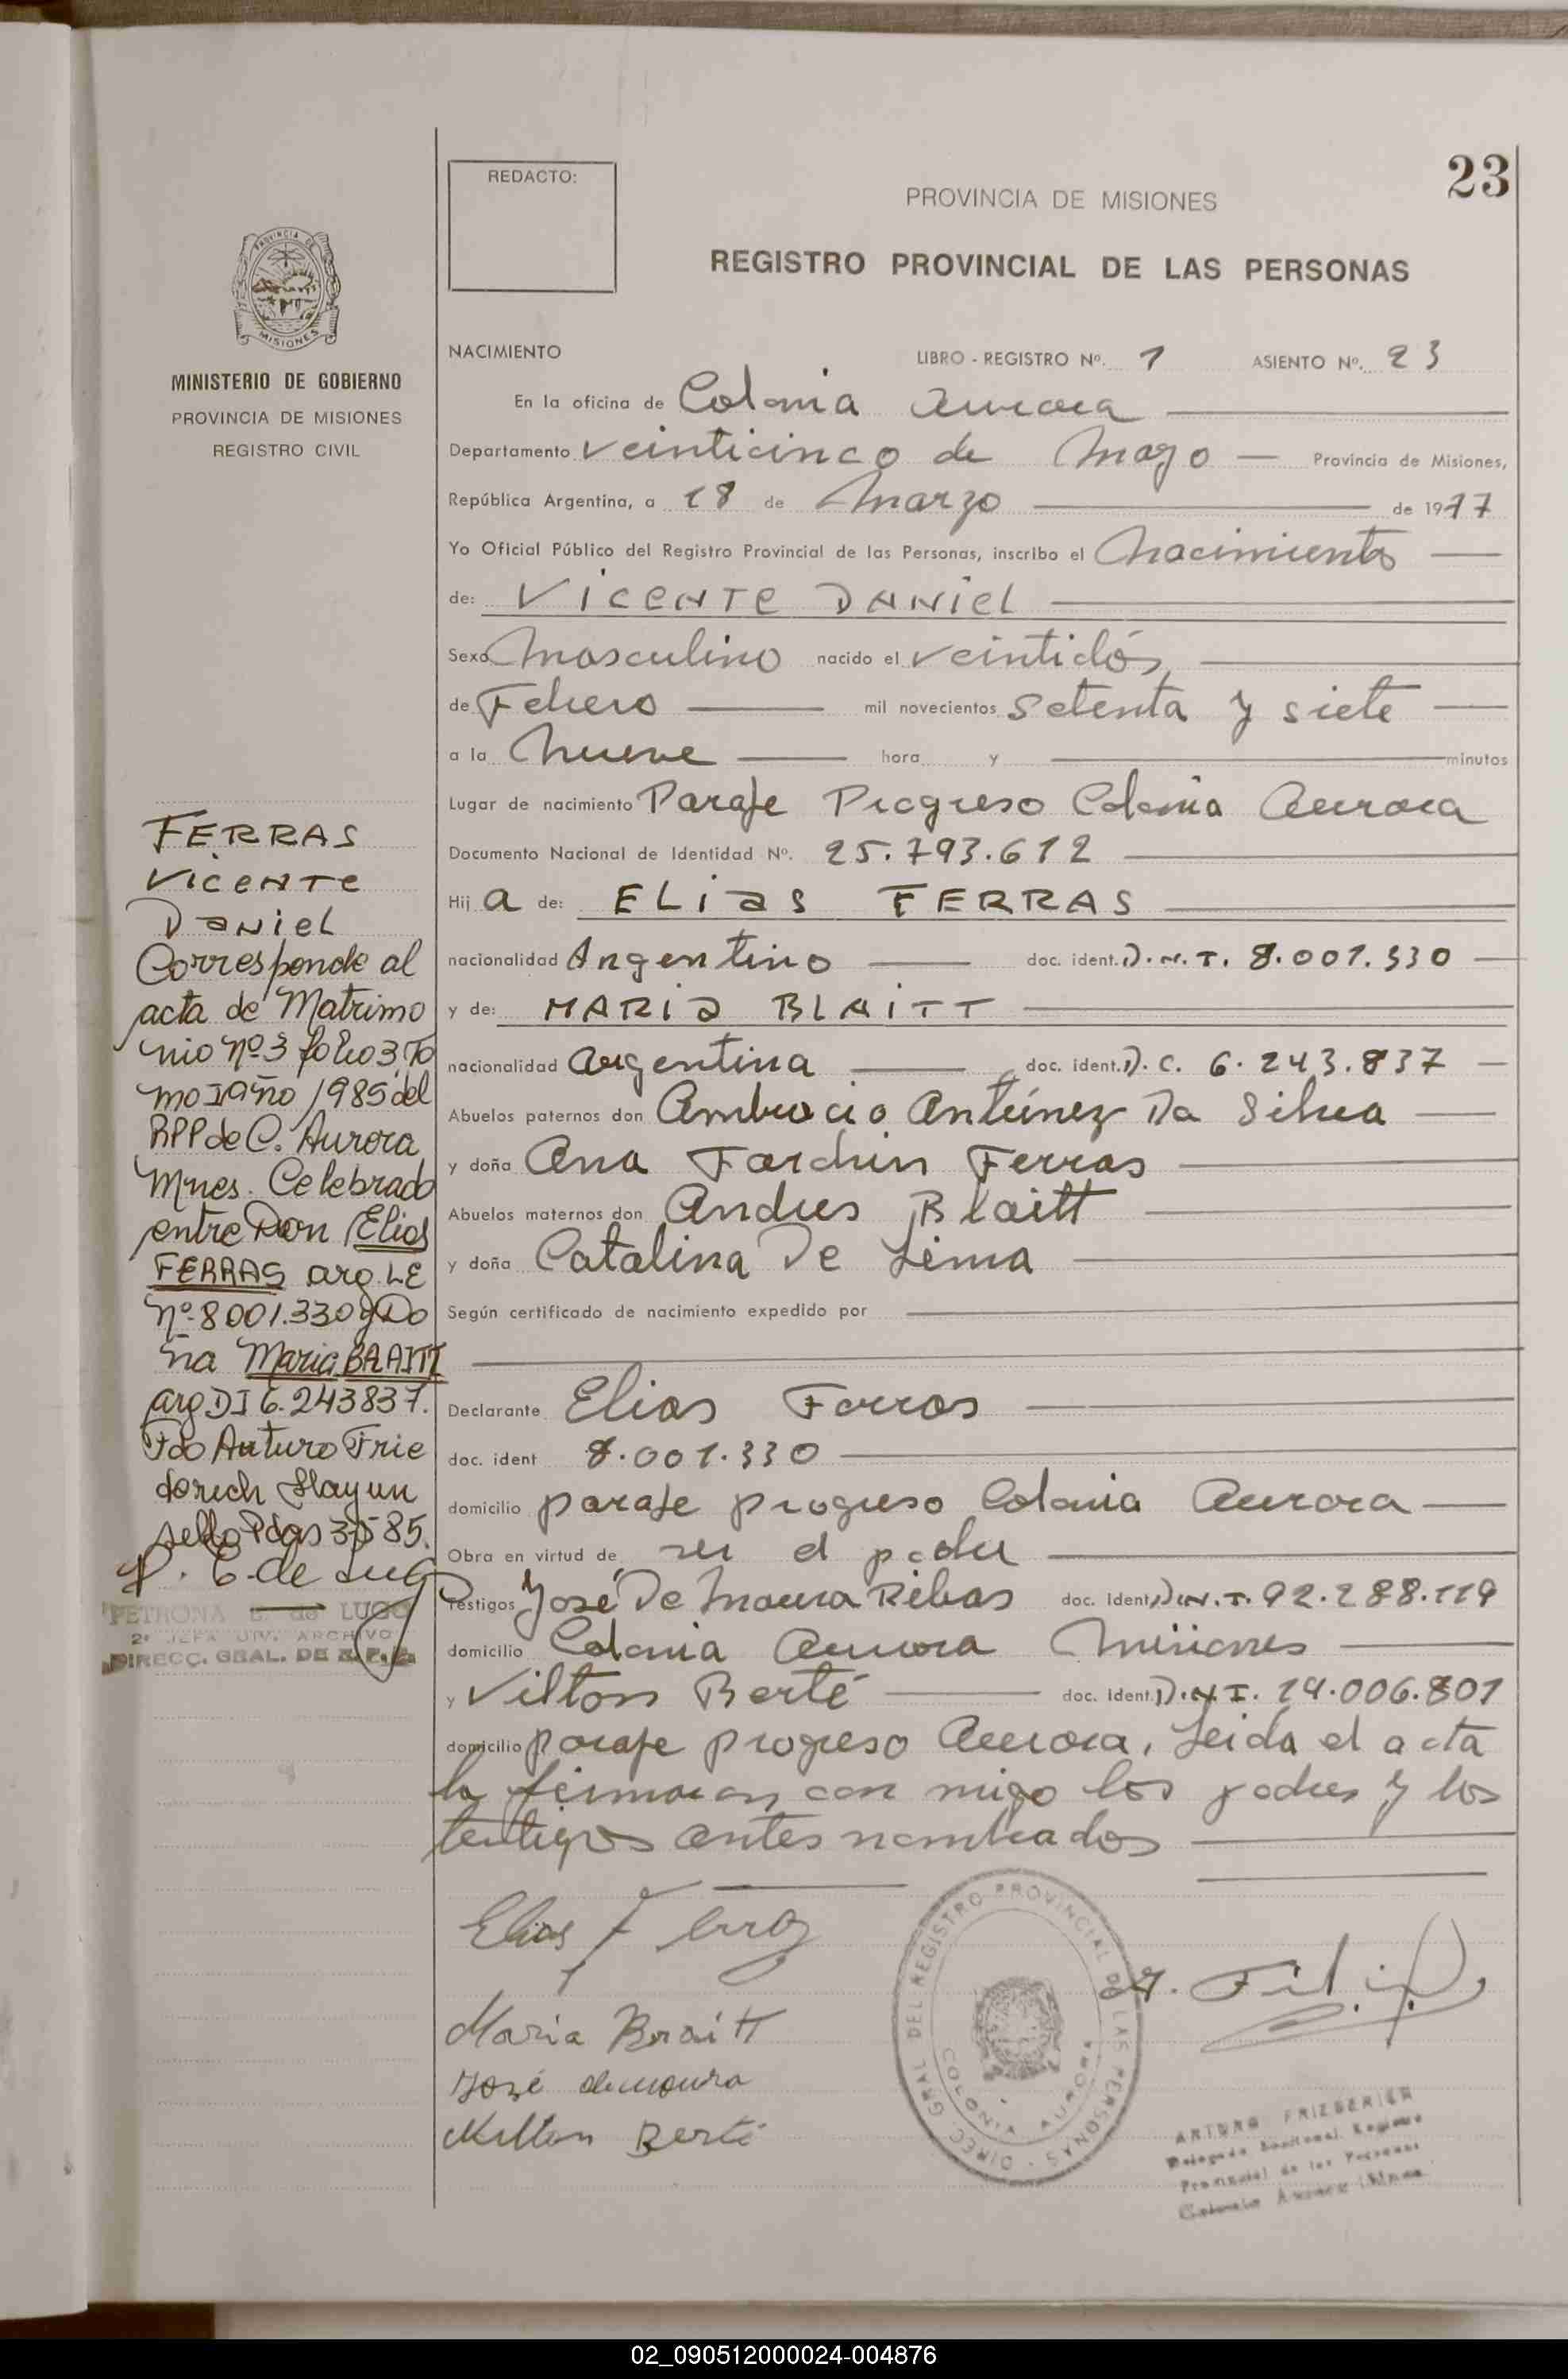 23
REDACTO:
PROVINCIA DE MISIONES
REGISTRO PROVINCIAL DE LAS PERSONAS
PROVINCIA DE
MISIONES
MINISTERIO DE GOBIERNO
PROVINCIA DE MISIONES
REGISTRO CIVIL
NACIMIENTO LIBRO - REGISTRO Nº. 1 ASIENTO Nº. 23
En la oficina de Colonia Aurora
Departamento Veinticinco de Mayo Provincia de Misiones,
República Argentina, a 18 de Marzo de 1977
Yo Oficial Público del Registro Provincial de las Personas, inscribo el Nacimiento
de: VICENTE DANIEL
Sexo Masculino nacido el veintidós
de Febrero mil novecientos setenta y siete
a la Nueve hora y minutos
Lugar de nacimiento Paraje Progreso Colonia Aurora
Documento Nacional de Identidad Nº. 25.793.612
Hij a de: ELIAS FERRAS
nacionalidad Argentino doc. ident. D.N.I. 8.001.330
y de: MARIA BLAITT
nacionalidad argentina doc. ident. D.C. 6.243.837
Abuelos paternos don Ambrocio Antúnez Da Silva
y doña Ana Fardin Ferras
Abuelos maternos don Andres Blaitt
y doña Catalina De Lima
Según certificado de nacimiento expedido por
Declarante Elias Ferras
doc. ident 8.001.330
domicilio paraje progreso Colonia Aurora
Obra en virtud de ser el padre
Testigos José De Moura Ribas doc. ident. D.N.I. 92.288.119
domicilio Colonia Aurora Misiones
y Vilton Berté doc. ident. D.N.I. 14.006.801
domicilio paraje progreso Aurora, Leida el acta
la firmaran con migo los padres y los
testigos antes nombrados
FERRAS
VICENTE
DANIEL
Corresponde al
acta de Matrimo
nio nº 3 folio 3 To
mo I año 1985 del
RPP de C. Aurora
Mnes. Celebrado
entre Don Elias
FERRAS arg. LE
nº 8001.330 y Do
ña Maria BRAITT
arg DI 6.243837.
Fdo Arturo Frie
derich Hay un
sello Pdas 85.
P. E de Lugo
PETRONA E. de LUGO
2ª JEFA DIV. ARCHIVO
DIRECC. GRAL. DE R.P.P.
Elias Ferraz
Maria Braitt
José demoura
Milton Berté
DIREC. GRAL. DEL REGISTRO PROVINCIAL DE LAS PERSONAS
COLONIA AURORA
ARTURO FRIEDERICH
Provincial de las Personas
Colonia Aurora
02_090512000024-004876